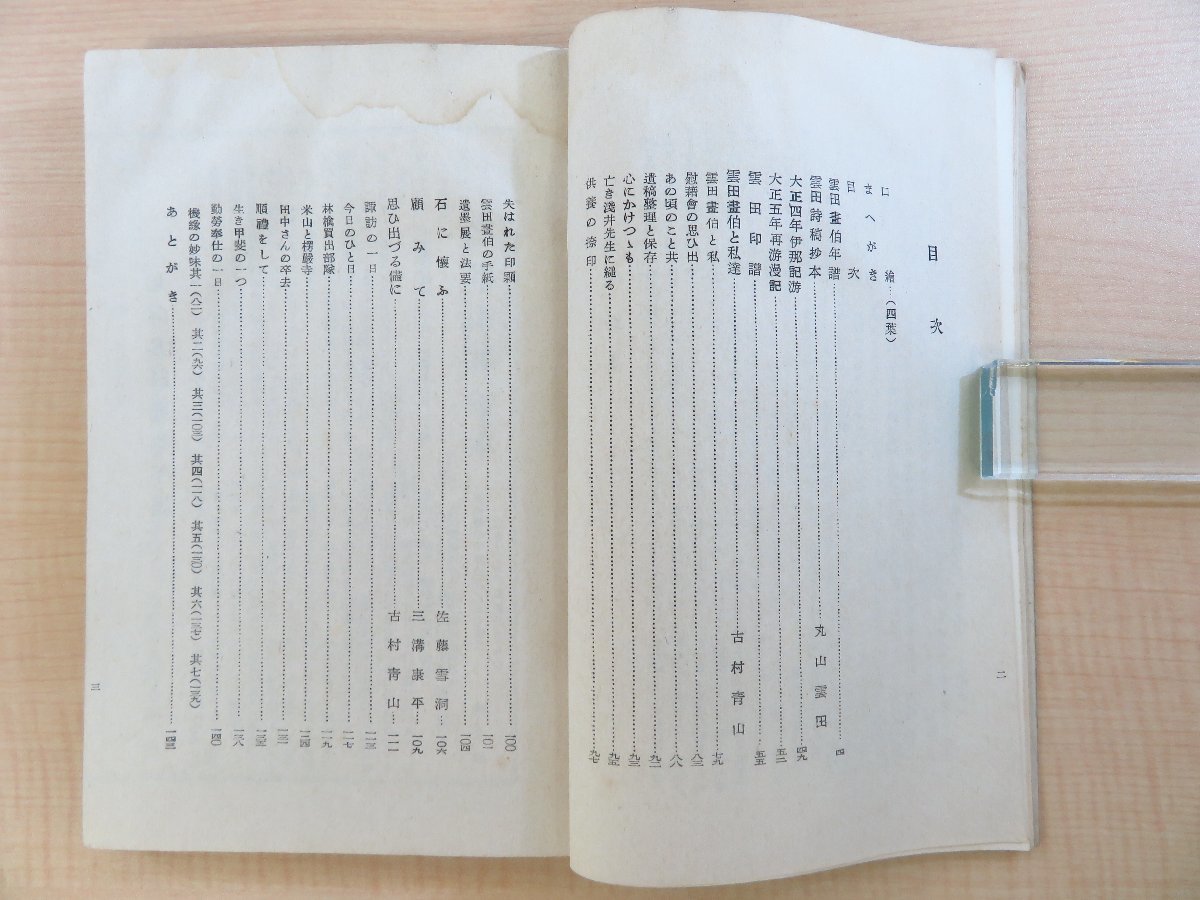 目次
口繪…(四葉)
まへがき
目次
雲田畫伯年譜……四
雲田詩稿抄本……丸山雲田
大正四年伊那記游……四九
大正五年再游漫記……五二
雲田印譜……五五
雲田畫伯と私達……古村青山
雲田畫伯と私……七九
慰藉會の思ひ出……八三
あの頃のこと共……八八
遺稿整理と保存……九二
心にかけつゝも……九三
亡き淺井先生に縋る……九五
供養の捺印……九七
二
失はれた印顆……一〇〇
雲田畫伯の手紙……一〇一
遺墨展と法要……一〇四
石に懷ふ……佐藤雪洞…一〇六
顧みて……三溝康平…一〇九
思ひ出づる儘に……古村青山…一一一
諏訪の一日……一一三
今日のひと日……一一七
林檎買出部隊……一一九
米山と楞嚴寺……一二四
田中さんの卒去……一三一
順禮をして……一三五
生き甲斐の一つ……一三八
勤勞奉仕の一日……一四〇
機緣の妙味其一(八二) 其二(九六) 其三(一〇三) 其四(一一八) 其五(一三〇) 其六(一三七) 其七(一三九)
あとがき……一四三
三